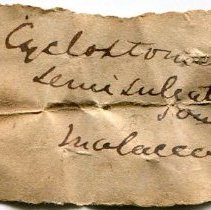 Cyclostoma
semisulcat
Sow
Malacca